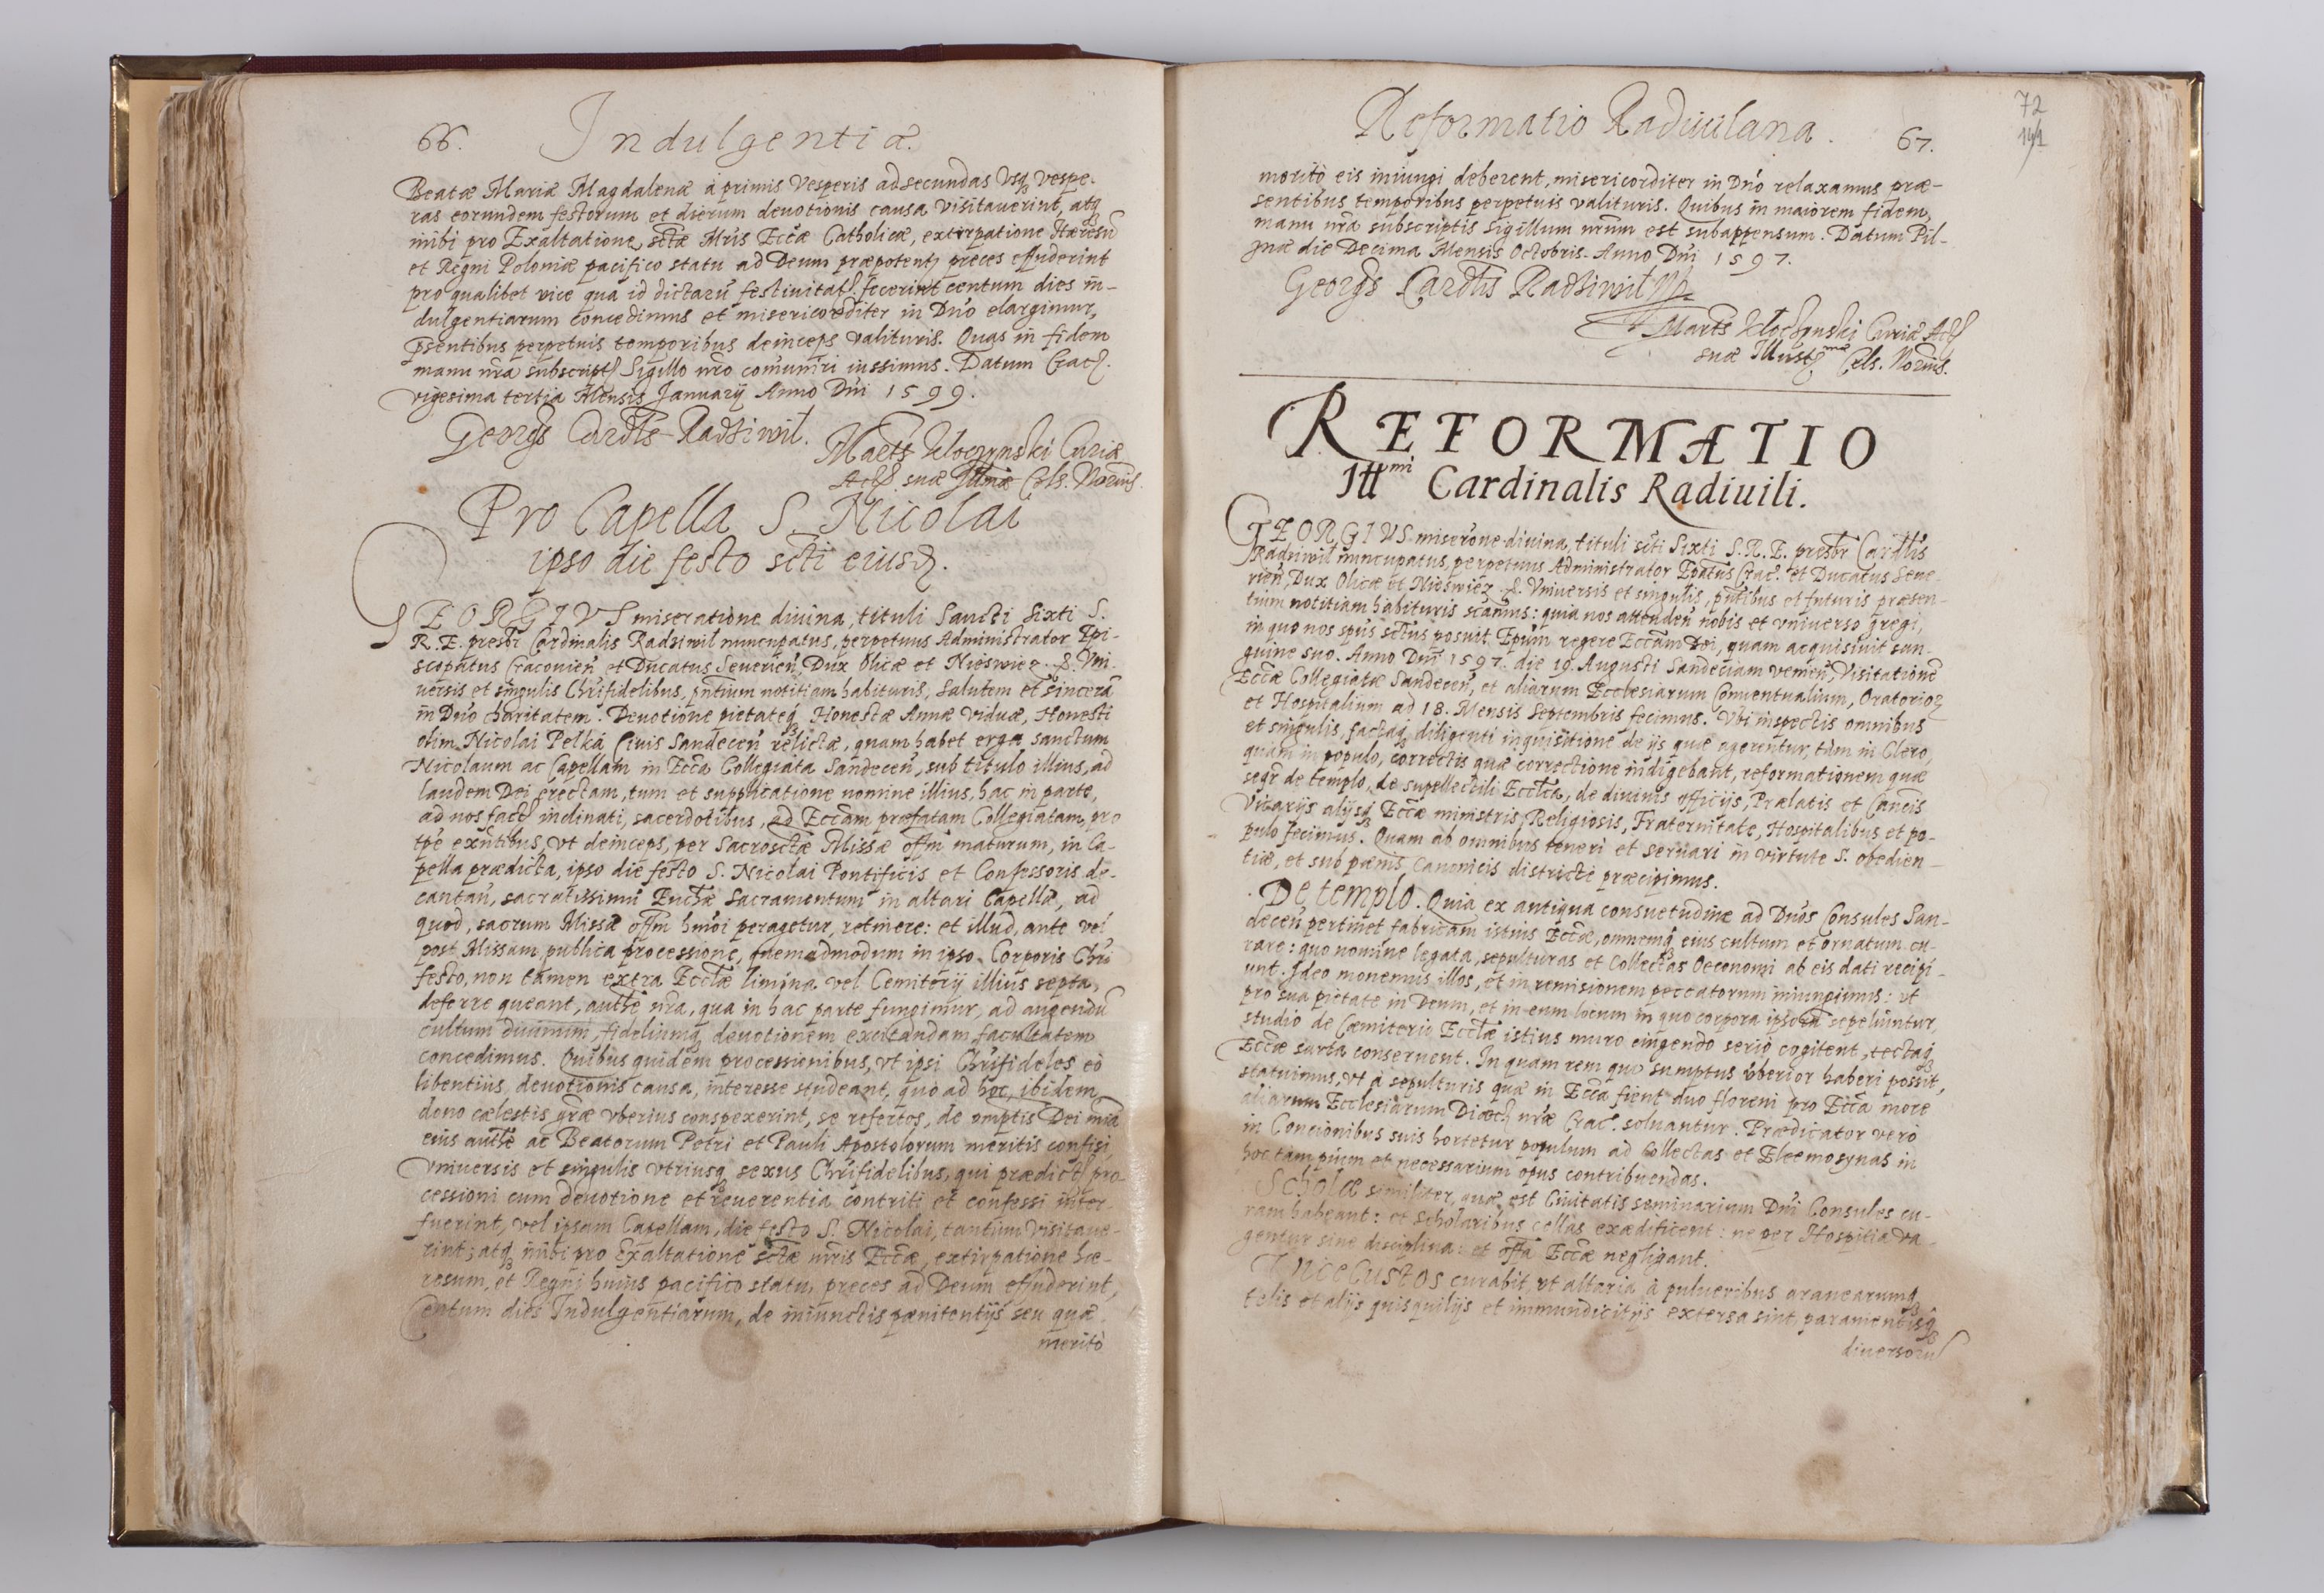 66. Indulgentiæ.
Beatæ Mariæ Magdalenæ à primis Vesperis ad secundas Vsq vespe-
ras eorundem festorum et dierum deuotionis causa visitauerint, atq
inibi pro Exaltatione sctæ Mris Eccæ Catholicæ, extirpatione Hæresū
et Regni Poloniæ pacifico statu ad Deum præpotent preces effuderint
pro qualibet vice qua id dictarū festiuitat fecerint centum dies in-
dulgentiarum concedimus et misericorditer in Dno elargimur,
psentibus perpetuis temporibus deinceps valituris. Quas in fidem
manu nra subscript Sigillo nro comuniri iussimus. Datum Crac.
vigesima tertia Mensis Januarij Anno Dni 1599.
Georgs Cardlis Radziwil.
Marts Kloczynski Curiæ
Act suæ Illmæ Cels. Notrius.
Pro Capella S. Nicolai
ipso die festo scti eiusd.
GEORGIVS miseratione diuina, tituli Sancti Sixti S.
R.E. presbr Cardinalis Radziwil nuncupatus, perpetuus Administrator Epi-
scopatus Cracouien et Ducatus Seuerien, Dux Olicæ et Nieswiez &. Vni-
uersis et singulis Chrifidelibus, pntium notitiam habituris, Salutem et sincerā
in Dno charitatem. Deuotione pietateq Honestæ Annæ Viduæ, Honesti
olim Nicolai Pelka Ciuis Sandecen relictæ, quam habet erga sanctum
Nicolaum ac Capellam in Ecca Collegiata Sandecen, sub titulo illius, ad
laudem Dei erectam, tum et supplicatione nomine illius, hac in parte,
ad nos fact inclinati, sacerdotibus, ad Eccam præfatam Collegiatam, pro
tpe exntibus, vt deinceps, per Sacrosctæ Missæ offm maturum, in Ca-
pella prædicta, ipso die festo S. Nicolai Pontificis et Confessoris de-
cantan, sacratissimū Euchæ Sacramentum in altari Capellæ, ad
quod, sacrum Missæ offm hmoi peragetur, retinere: et illud, ante vel
post Missam publica processione, quemadmodum in ipso Corporis Chri
festo, non tamen extra Ecclæ limina vel Cemiterij illius septa,
deferre queant, authe nra, qua in hac parte fungimur, ad augendū
cultum diuinum, fideliumq deuotionem excitandam facultatem
concedimus. Quibus quidem processionibus, vt ipsi Chrifideles eò
libentius, deuotionis causa, interesse studeant, quo ad hoc, ibidem
dono cælestis græ vberius conspexerint, se refertos, de omptis Dei mia
eius authe ac Beatorum Petri et Pauli Apostolorum meritis confisi,
vniuersis et singulis vtriusq sexus Chrifidelibus, qui prædict pro-
cessioni cum deuotione et reuerentia contriti et confessi inter-
fuerint, vel ipsam Capellam, die festo S. Nicolai, tantùm visitaue-
rint; atq inibi pro Exaltatione sctæ mris Eccæ, extirpatione hæ-
resum, et Regni huius pacifico statu, preces ad Deum effuderint,
Centum dies Indulgentiarum, de iniunctis pænitentijs seu quæ
meritò
Reformatio Radiuilana. 67.
72
141
meritò eis iniungi deberent, misericorditer in Dno relaxamus præ-
sentibus temporibus perpetuis valituris. Quibus in maiorem fidem,
manu nra subscriptis Sigillum nrum est subappensum. Datum Pil-
znæ die Decima Mensis Octobris Anno Dni 1597.
Georgs Cardlis Radziwil
Marts Kloczynski Curiæ Act
suæ Illustmæ Cels. Notrius.
REFORMATIO
Illmi Cardinalis Radiuili.
GEORGIVS miserone diuina, tituli scti Sixti S.R.E. presbr Cardlis
Radziwil nuncupatus, perpetuus Administrator Epatus Crac. et Ducatus Seue-
rien, Dux Olicæ et Nieswiez &. Vniuersis et singulis, pntibus et futuris præsen-
tium notitiam habituris scamus: quia nos attenden nobis et vniuerso gregi,
in quo nos spus sctus posuit Epum regere Eccam Dei, quam acquisiuit san-
guine suo. Anno Dni 1597. die 19. Augusti Sandeciam venien, Visitationē
Eccæ Collegiatæ Sandecen, et aliarum Ecclesiarum Conuentualium, Oratorio
et Hospitalium ad 18. Mensis Septembris fecimus. Vbi inspectis omnibus
et singulis, factaq diligenti inquisitione de ijs quæ agerentur, tùm in Clero,
quàm in populo, correctis quæ correctione indigebant, reformationem quæ
seqr de templo, de supellectili Ecclæ, de diuinis officijs, Prælatis et Cancis
Vicarijs alijsq Eccæ ministris, Religiosis, Fraternitate, Hospitalibus et po-
pulo fecimus. Quam ab omnibus teneri et seruari in virtute S. obedien-
tiæ, et sub pænis Canonicis districtè præcipimus.
De templo. Quia ex antiqua consuetudine ad Dnos Consules San-
decen pertinet fabricam istius Eccæ, omnemq eius cultum et ornatum cu-
rare: quo nomine legata, sepulturas et Collectas Oeconomi ab eis dati recipi-
unt. Ideo monemus illos, et in remisionem peccatorum iniungimus: vt
pro sua pietate in Deum, et in eum locum in quo corpora ipsorū sepeliuntur,
studio de Cæmiterio Ecclæ istius muro cingendo seriò cogitent, tectaq
Eccæ sarta conseruent. In quam rem quo sumptus vberior haberi possit,
statuimus, vt à sepulturis quæ in Ecca fient duo floreni pro Ecca more
aliarum Ecclesiarum Diæc nræ Crac. soluantur. Prædicator verò
in Concionibus suis hortetur populum ad Collectas et Eleemosynas in
hoc tam pium et necessarium opus contribuendas.
Scholæ similiter, quæ est Ciuitatis seminarium Dni Consules cu-
ram habeant: et Scholaribus cellas exædificent: ne per Hospitia va-
gentur sine disciplina: et offa Eccæ negligant.
Vice Custos curabit, vt altaria à pulueribus aranearumq
telis et alijs quisquilijs et immundicitijs extersa sint, paramentisq
diuersorū